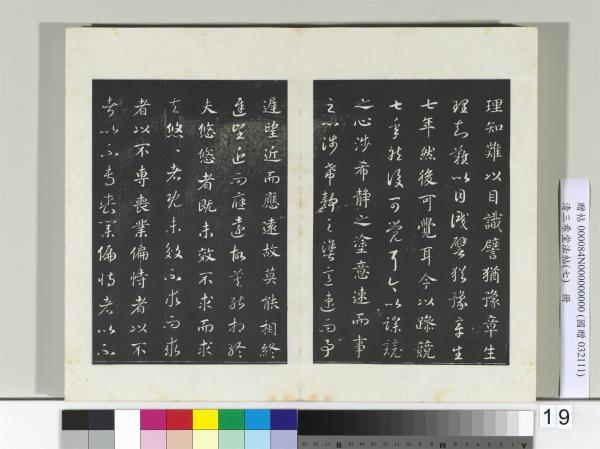 理知難以目識譬猶豫章生
理知難以目識譬猶豫章生
七年然後可覺耳今以躁競
七年然後可覺耳今以躁競
之心涉希静之塗意速而事
之心涉希静之塗意速而事
遲望近而應遠故莫能相終
遲望近而應遠故莫能相終
夫悠悠者既未效不求而求
夫悠〻者既未效不求而求
者以不專喪業偏恃者以不
者以不專喪業偏恃者以不
贈帖 000084N000000000 (國贈 032111)
清三希堂法帖(七) 冊
19